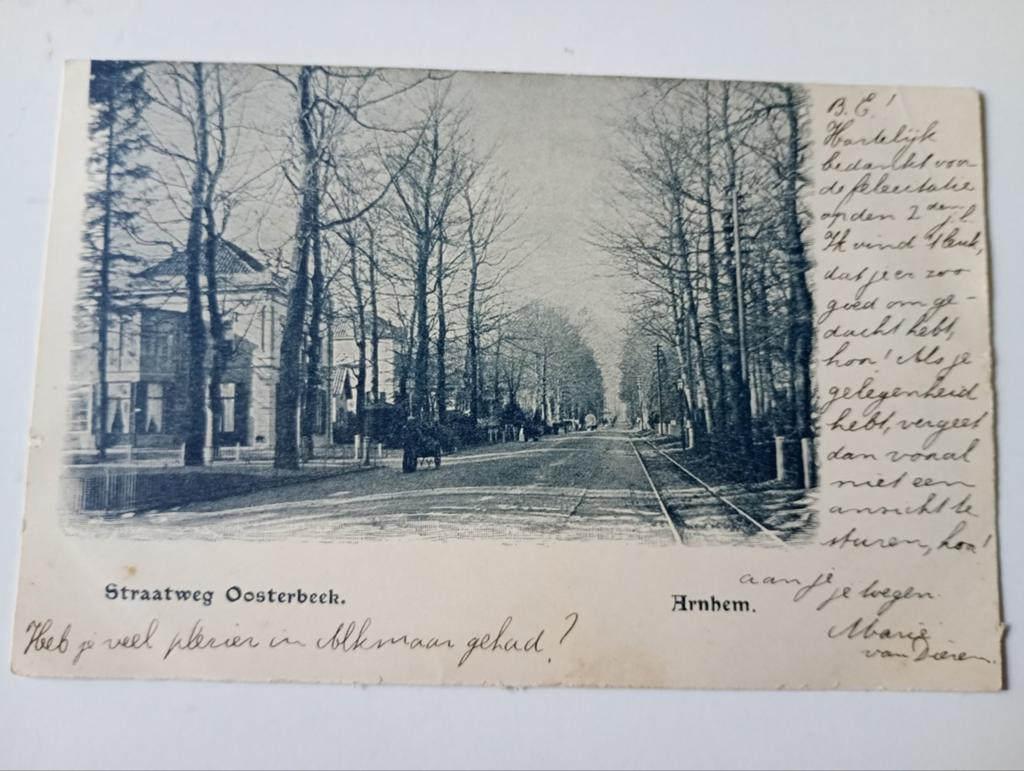 B. E!
Hartelijk
bedankt voor
de felecitatie
op den 2den j.l.
Ik vind 't leuk,
dat je er zoo
goed om ge-
dacht hebt,
hoor! Als je
gelegenheid
hebt, vergeet
dan vooral
niet een
ansicht te
sturen, hoor!
aan je
je toegen.
Marie
van Dieren.
Straatweg Oosterbeek.
Arnhem.
Heb je veel plezier in Alkmaar gehad?